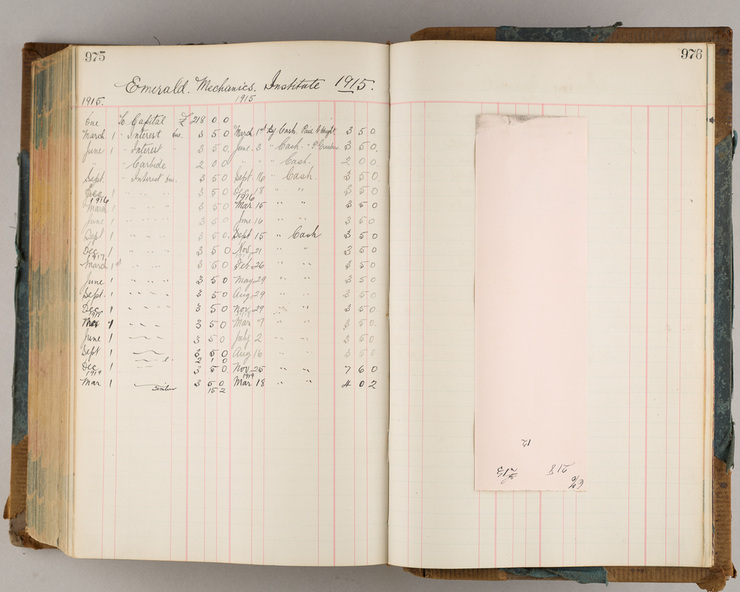 975
976
Emerald. Mechanics. Institute 1915.
1915. 1915
To Capital £ 218 0 0
March 1 " Interest 3 5 0 March 1st By Cash 3 5 0
June 1 " Interest " 3 5 0 June 3 " Cash 3 5 0
" " Carbide 2 0 0 " Cash 2 0 0
Sept. " Interest 3 5 0 Sept. 16 " Cash 3 5 0
Dec 1 " " " 3 5 0 18 " " 3 5 0
1916 1916
March 1 " " " 3 5 0 Mar 15 " " 3 5 0
June 1 " " " 3 5 0 June 14 " " 3 5 0
Sept 1 " " " 3 5 0 Sept 15 " Cash 3 5 0
Dec 1 " " " 3 5 0 Nov. 21 " " 3 5 0
March 1st " " " 3 5 0 Feb 26 " " 3 5 0
June 1 " " " 3 5 0 May 29 " " 3 5 0
Sept. 1 " " " 3 5 0 Aug 29 " " 3 5 0
Dec 1 " " " 3 5 0 Nov. 29 " " 3 5 0
Mar 1 " " " 3 5 0 Mar 7 " " 3 5 0
June 1 " " " 3 5 0 July 2 " " 3 5 0
Sept 1 3 5 0 Aug 16 " " 3 5 0
2 1 0
Dec 1 3 5 0 Nov. 25 " " 7 6 0
1919 1919
Mar 1 3 5 0 Mar 18 " " 4 0 2
15 2
12